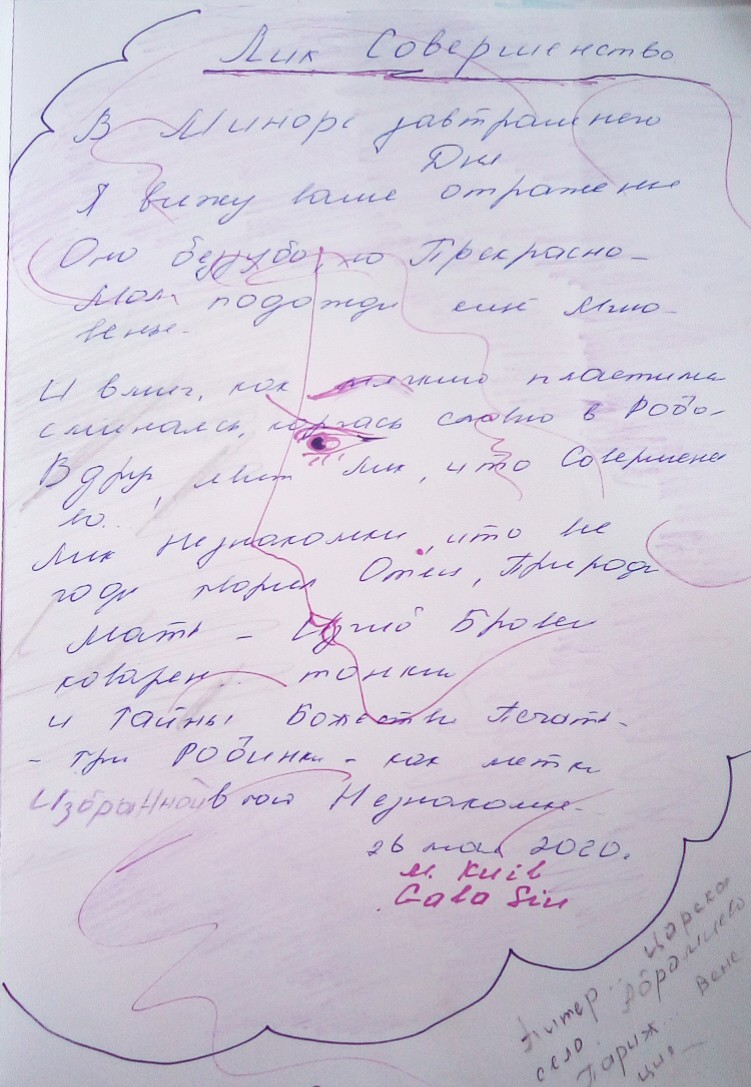 Лик Совершенство
В Миноре завтрашнего
Дня
Я вижу ваше отраженье
Оно беззубо, но Прекрасно-
Мол, подожди ещё Мгно-
венье-
И вмиг, как мягкий пластилин
сминаясь, корчась словно в Робо-
Вдруг, Лик, что Совершен
Лик Незнакомки, что не
годы творил Отец, Природа
Мать - Изгиб Брови
коварен.. тонки
и Тайны Божества Печать-
- три Робинки - как метки
Избранной в той Незнакомке-
26 мая 2020.
м. Київ
Gala Sin
Питер... Царское
село. Абрамцево
Париж... Вене
ция-